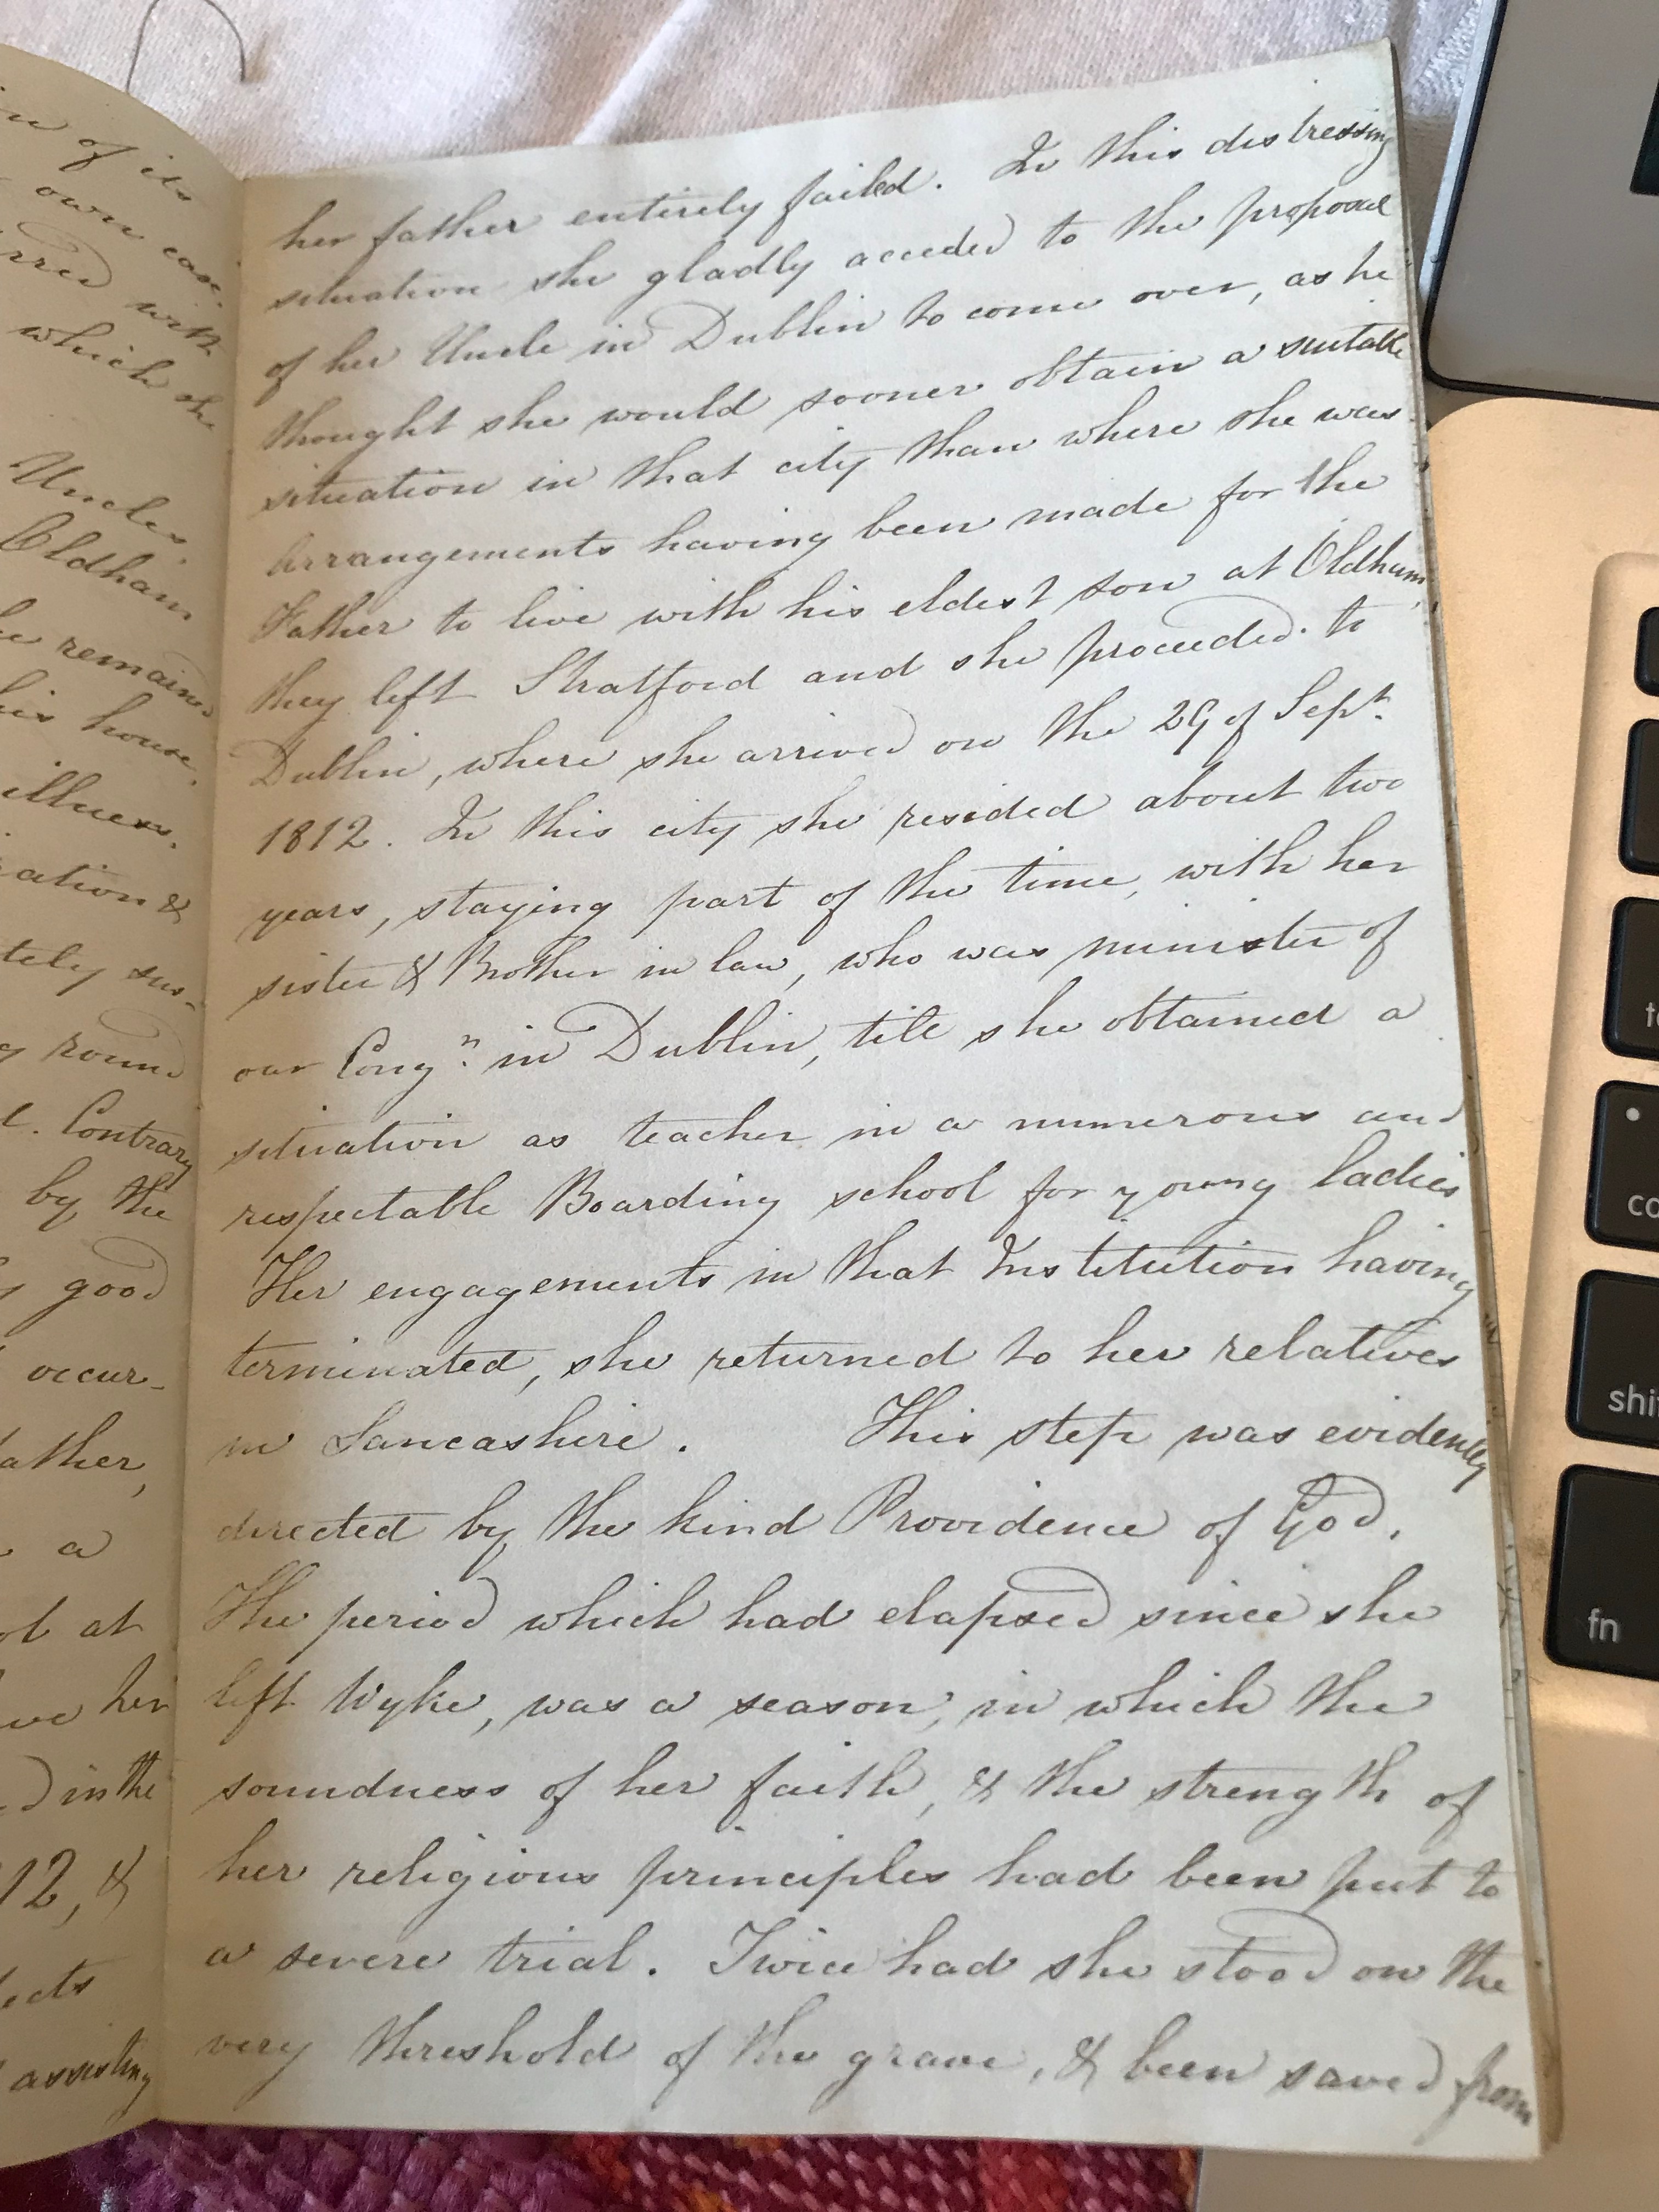 n of its
own case.
rred with
which she
Uncles,
Oldham
he remained
his house,
illness,
ration &
tely sus-
g round
l. Contrary
by the
good
occur-
father,
a
ol at
ve her
d in the
12, &
fects
assisting
her father entirely failed. In this distressing
situation she gladly acceded to the proposal
of her Uncle in Dublin to come over, as he
thought she would sooner obtain a suitable
situation in that city than where she was.
Arrangements having been made for the
Father to live with his eldest son at Oldham,
they left Stratford and she proceeded to
Dublin, where she arrived on the 29 of Sept.
1812. In this city she resided about two
years, staying part of the time, with her
sister & Brother in law, who was minister of
our Congn. in Dublin, till she obtained a
situation as teacher in a numerous and
respectable Boarding school for young ladies
Her engagements in that Institution having
terminated, she returned to her relatives
in Lancashire. This step was evidently
directed by the kind Providence of God.
The period which had elapsed since she
left Wyke, was a season, in which the
soundness of her faith, & the strength of
her religious principles had been put to
a severe trial. Twice had she stood on the
very threshold of the grave, & been saved from
shi
fn